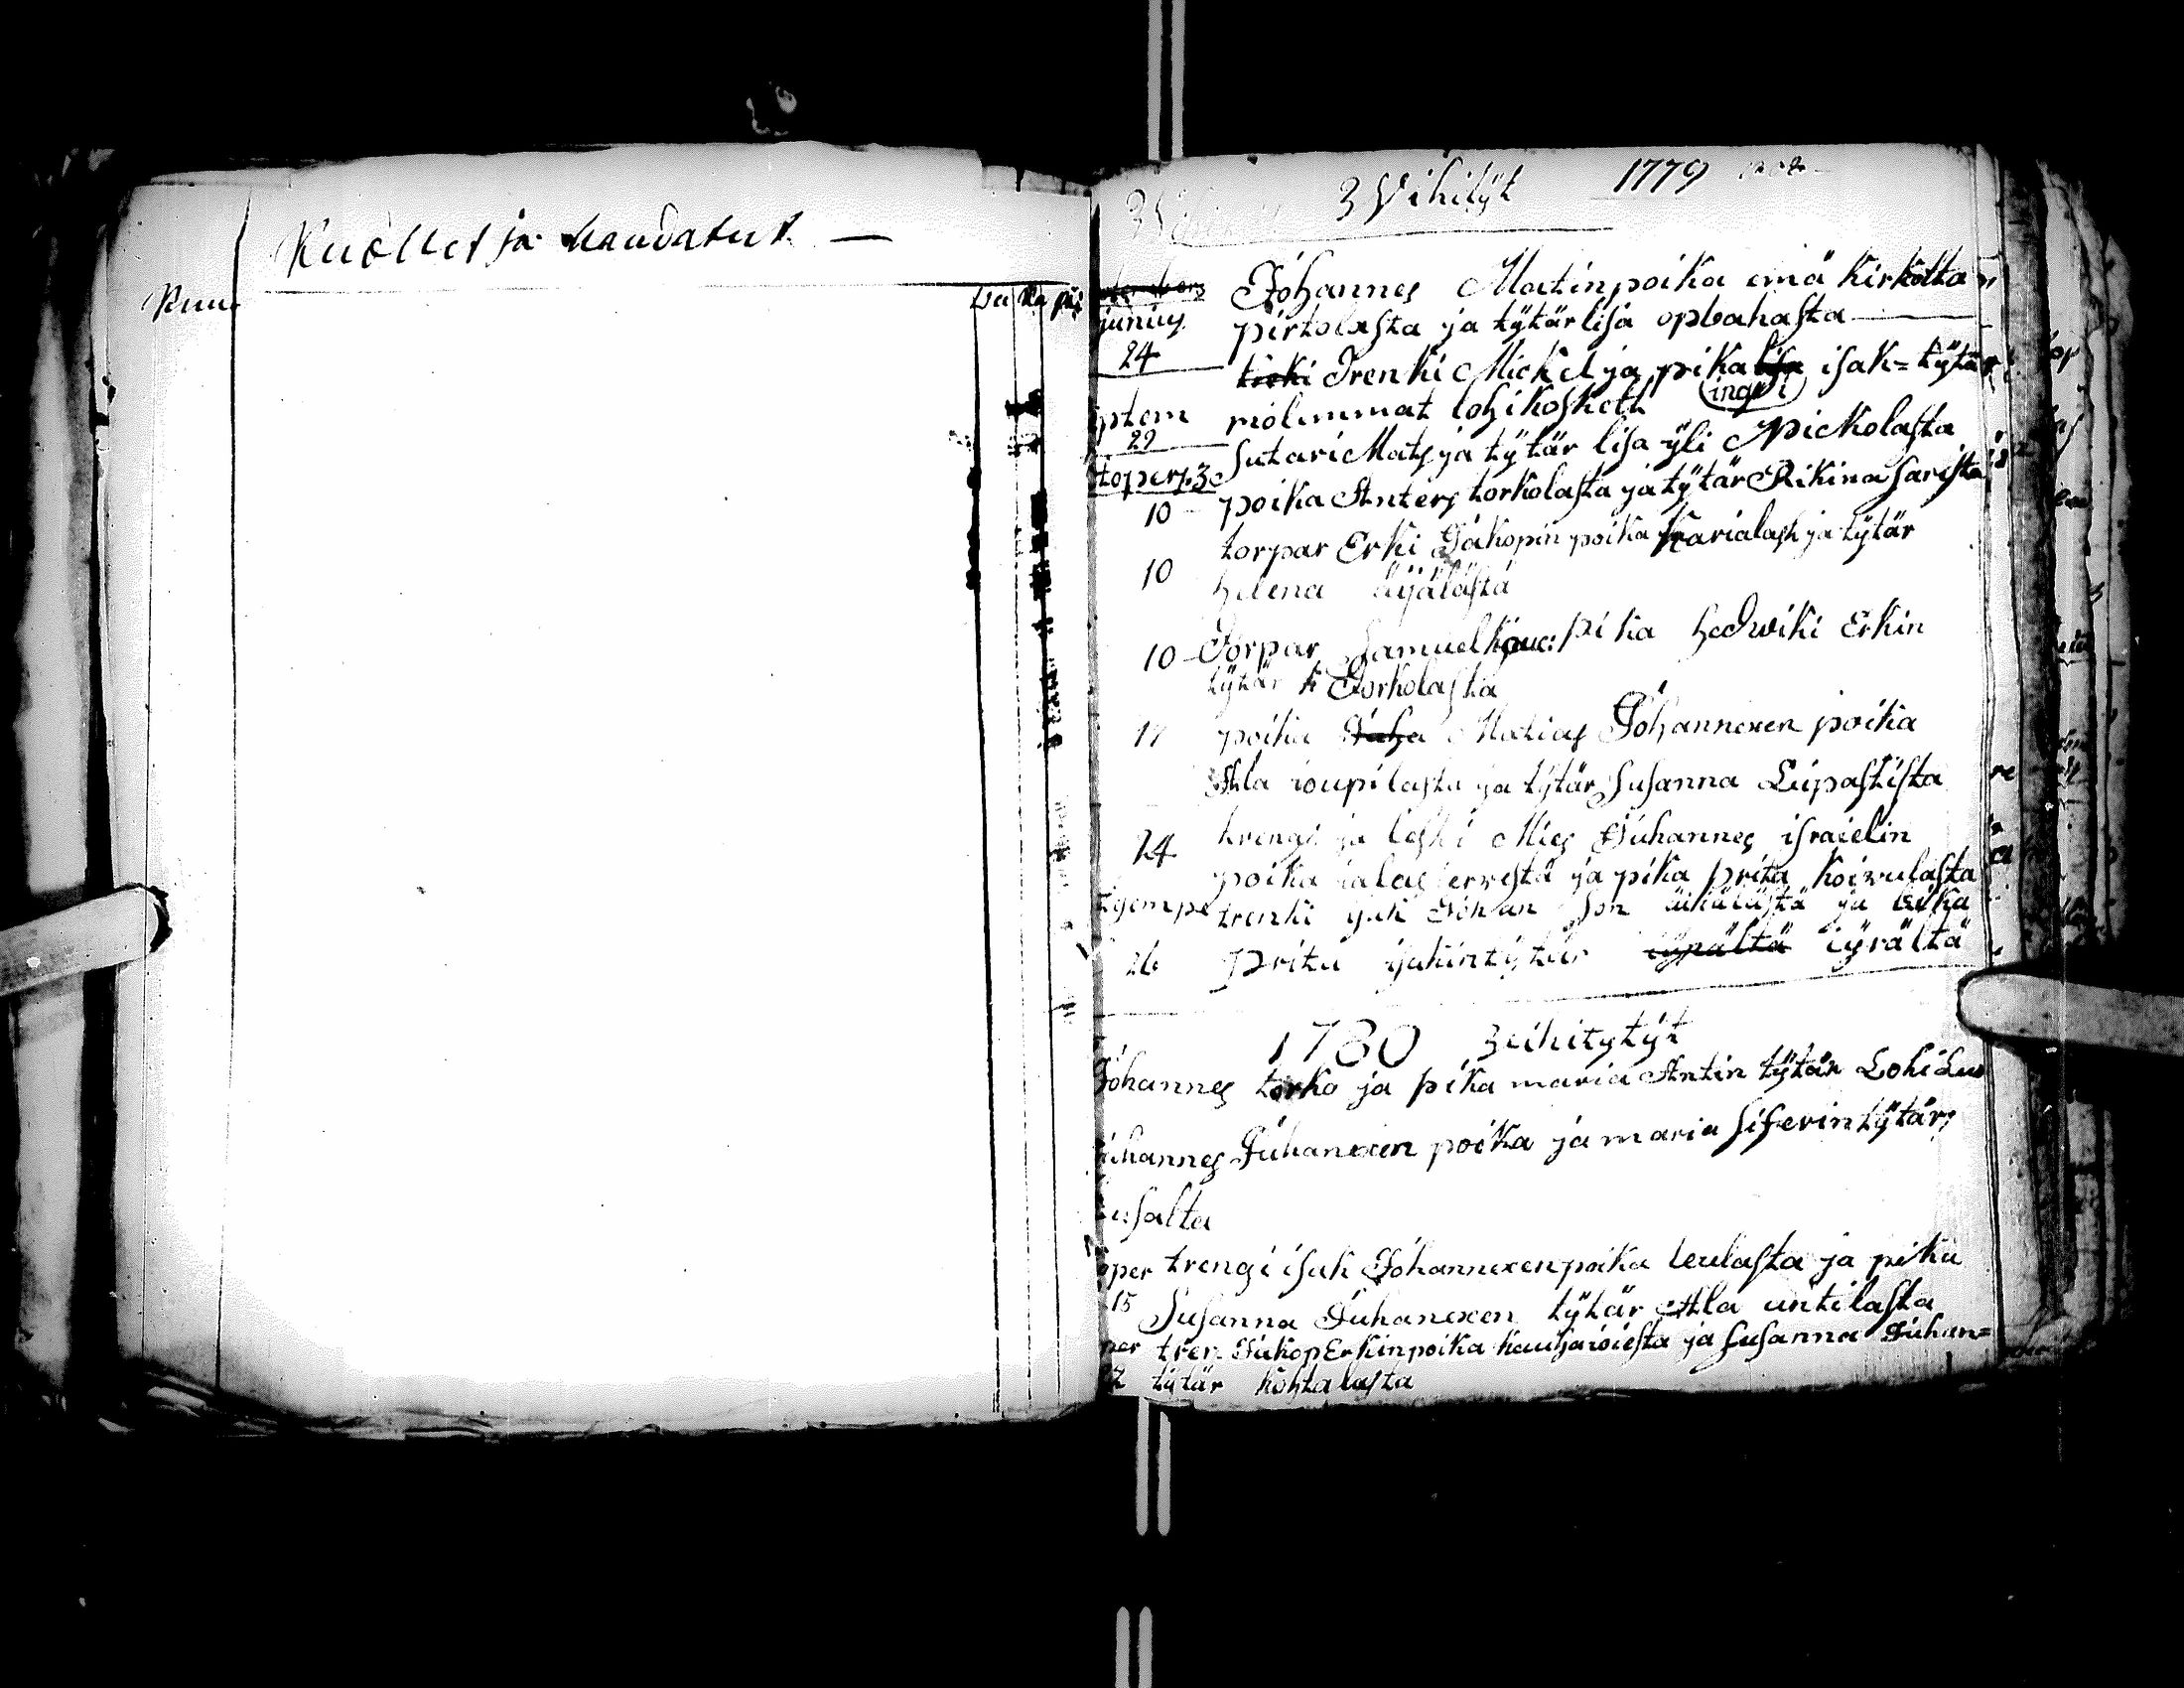 Kuollet ja haudatut —
Kuu
wu ku päi
3 Vihityt 1779
Johannes Matinpoika emä kirkolta
junius pirkolasta ja tytär lisa opbahasta
24
Trenki Mickel ja pika isak=tytär
ingri
ptem molemmat lohikoskelt
29
sutari Mats ja tytär lisa yli Pickolasta
topers 3
10 poika Anters torkolasta ja tytär Rikina sarista
torpar Erki Jakopin poika karialast ja tytär
10 helena äijälästä
10 Torpar Samuel pika hedwiki Erkin
tytär Torkolasta
17 poika Matias Johannexen poika
Ala ioupilasta ja tytär Susanna Lipastista
24 trengi ja leski Mies Juhannes israielin
poika ja pika prita koivulasta
trenki Johan son ja
26 prita tytär iyrältä
1780 3 vihitytyt
Johannes torko ja pika maria Antin tytär
Juhannes Juhanexen poika ja maria siferin tytär
usalta
per trengi isak Johannexen poika leulasta ja pika
15 Susanna Juhanexen tytär Ala untilasta
per tren Jakop Erkin poika ja susanna Juhan=
2 tytär kohtalasta